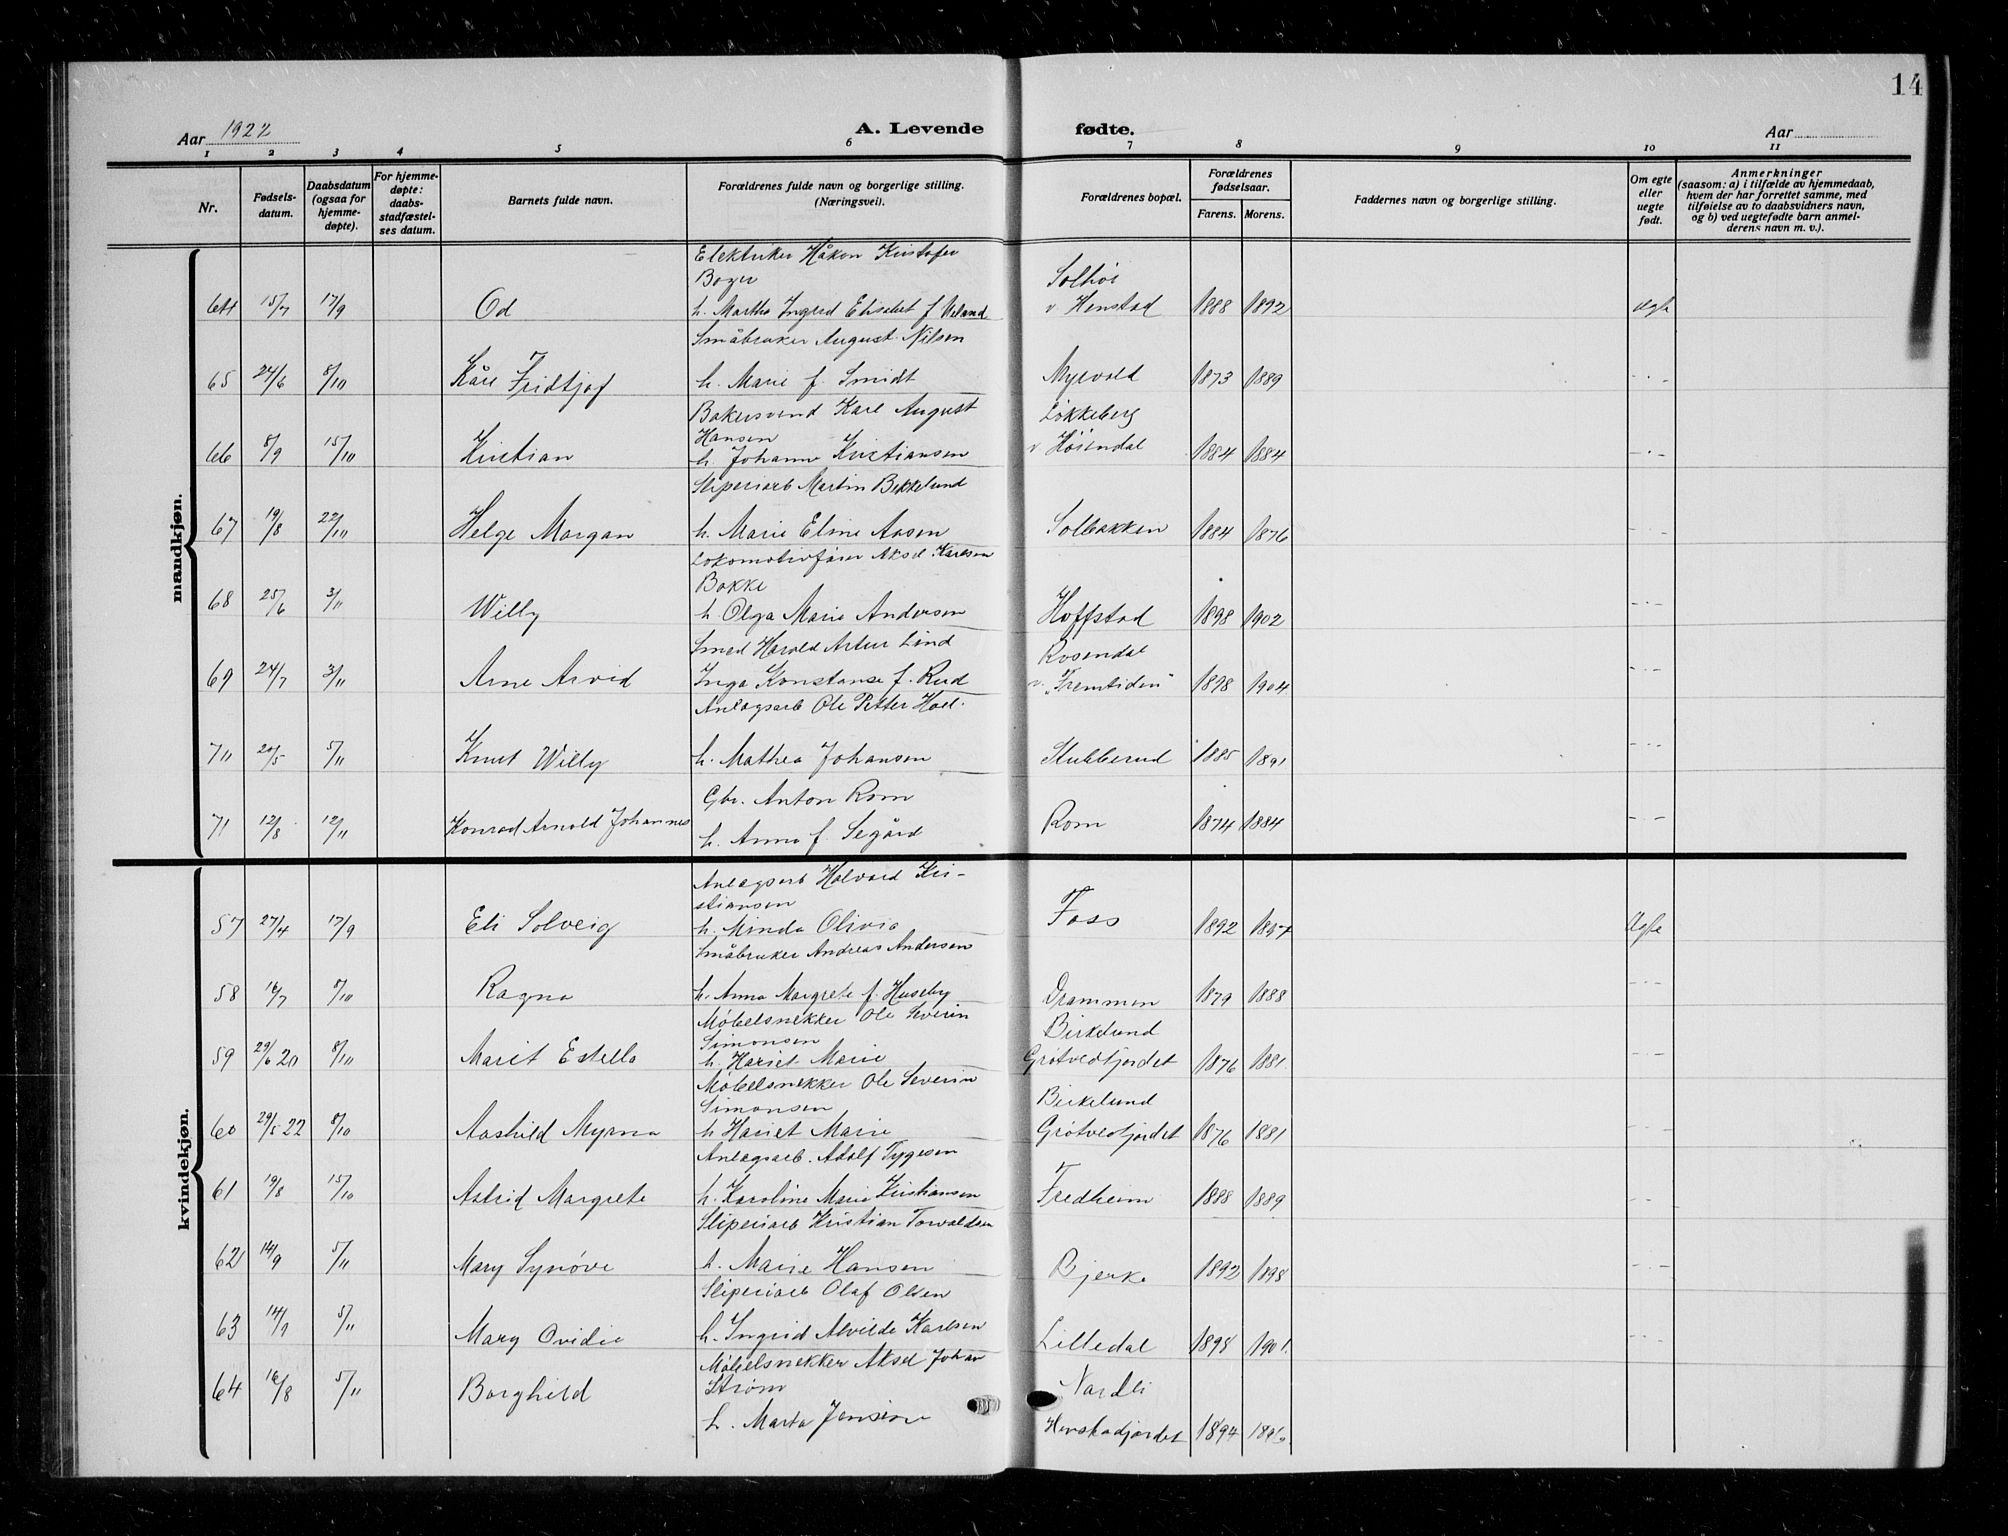 14
Aar 1922 A. Levende fødte. Aar
1 2 3 4 5 6 7 8 9 10 11
Nr. Fødsels-datum. Daabsdatum (ogsaa for hjemme-døpte). For hjemme-døpte: daabs-stadfæstel-ses datum. Barnets fulde navn. Forældrenes fulde navn og borgerlige stilling. (Næringsvei). Forældrenes bopæl. Forældrenes fødselsaar. Farens. Morens. Faddernes navn og borgerlige stilling. Om egte eller uegte født. Anmerkninger (saasom: a) i tilfælde av hjemmedaab, hvem der har forrettet samme, med tilføielse av to daabsvidners navn, og b) ved uegtefødte barn anmel-derens navn m. v.).
mandkjøn.
Elektriker Håkon Kristofer
Boger Solhøi
64 15/7 17/9 Od h. Martha Ingrid Elisabet f. v Henstad 1888 1892
Småbruker August Nilsen
65 24/6 8/10 Kåre Fridtjof h. Marie f. Smidt Myrvold 1873 1889 - . -
Bakersvend Karl August Løkkeberg
Hansen
66 8/9 15/10 Kristian h. Johanne Kristiansen v Høiendal 1884 1884 - . -
Sliperiarb Martin Bekkelund
67 19/8 22/10 Helge Morgan h. Marie Eline Aasen Solbakken 1884 1876 - . -
Lokomotivfører Aksel Karlsen
Bakke
68 25/6 3/11 Willy h. Olga Marie Andersen Hoffstad 1898 1902 - . -
Smed Harald Artur Lind Rosendal
69 24/7 3/11 Arne Arvid Inga Konstanse f. Rud v. „Fremtiden" 1898 1904 - . -
Anlægsarb Ole Petter Hoel.
70 20/5 5/11 Knut Willy h. Mathea Johansen Stubberud 1885 1891 - . -
Gbr. Anton Rom
71 12/8 12/11 Konrad Arnold Johannes h. Anna f. Segård Rom 1874 1884 - . -
kvindekjøn.
Anlægsarb Halvard Kri-
stiansen
57 27/4 17/9 Eli Solveig h. Minda Olivia Foss 1892 1897
Småbruker Andreas Andersen
58 16/7 8/10 Ragna h. Anna Margrete f. Huseby Drammen 1879 1888 - . -
Møbelsnekker Ole Severin Birkelund
Simonsen
59 29/6 20 8/10 Marit Estella h. Hariet Marie Grøtvedtjordet 1876 1881. - . -
Møbelsnekker Ole Severin Birkelund
Simonsen
60 29/5 22 8/10 Aashild Myrna h Hariet Marie Grøtvedtjordet 1876 1881 - . -
Anlægsarb. Adolf Tygesen
61 19/8 15/10 Astrid Margrete h. Karoline Marie Kristiansen Fredheim 1888 1889 - . -
Sliperiarb Kristian Torvaldsen
62 14/9 5/11 Mary Synøve h. Marie Hansen Bjerke 1892 1898 - . -
Sliperiarb Olaf Olsen
63 5/11 Mary Ovidie h. Ingrid Alvilde Karlsen Lilledal 1898 1901. - . -
Møbelsnekker Aksel Johan
64 16/8 5/11 Borghild Strøm Nordli
h. Marta Jensine 1894